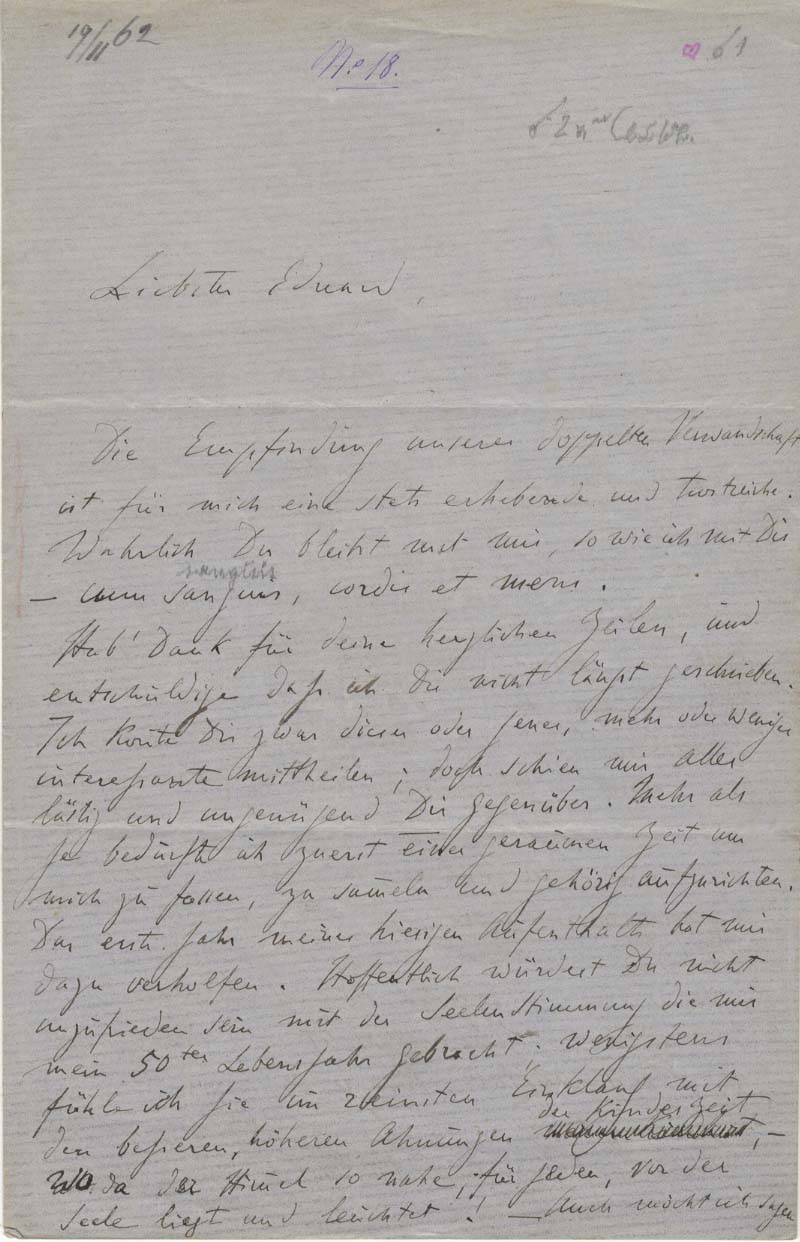 19/11 62
No 18.
61
Liebster Eduard,
Die Empfindung unserer doppelten Verwandschaft
ist für mich eine stets erhebende und trostreiche.
Wahrlich Du bleibst mit mir, so wie ich mit Dir
sanguis
— cum sanguis, cordis et mens.
Hab' Dank für deine herzlichen Zeilen, und
entschuldige dass ich Dir nicht längst geschrieben.
Ich konte Dir zwar dieses oder jenes, mehr oder weniger
interessante mittheilen; doch schien mir alles
lästig und ungenügend Dir gegenüber. Mehr als
je bedurfte ich zuerst einer geraümen Zeit um
mich zu fassen, zu sameln und gehörig aufzurichten.
Das erste Jahr meines hiesigen Aufenthalts hat mir
dazu verholfen. Hoffentlich würdest Du nicht
unzufrieden sein mit der Seelenstimmung die mir
mein 50ten Lebensjahr gebracht; wenigstens
fühle ich sie im reinsten Einklang mit
der Kinderzeit
den besseren, höheren Ahnungen , —
wo da der Himel so nahe, für jeden, vor der
Seele liegt und leuchtet! — Auch möcht ich sagen